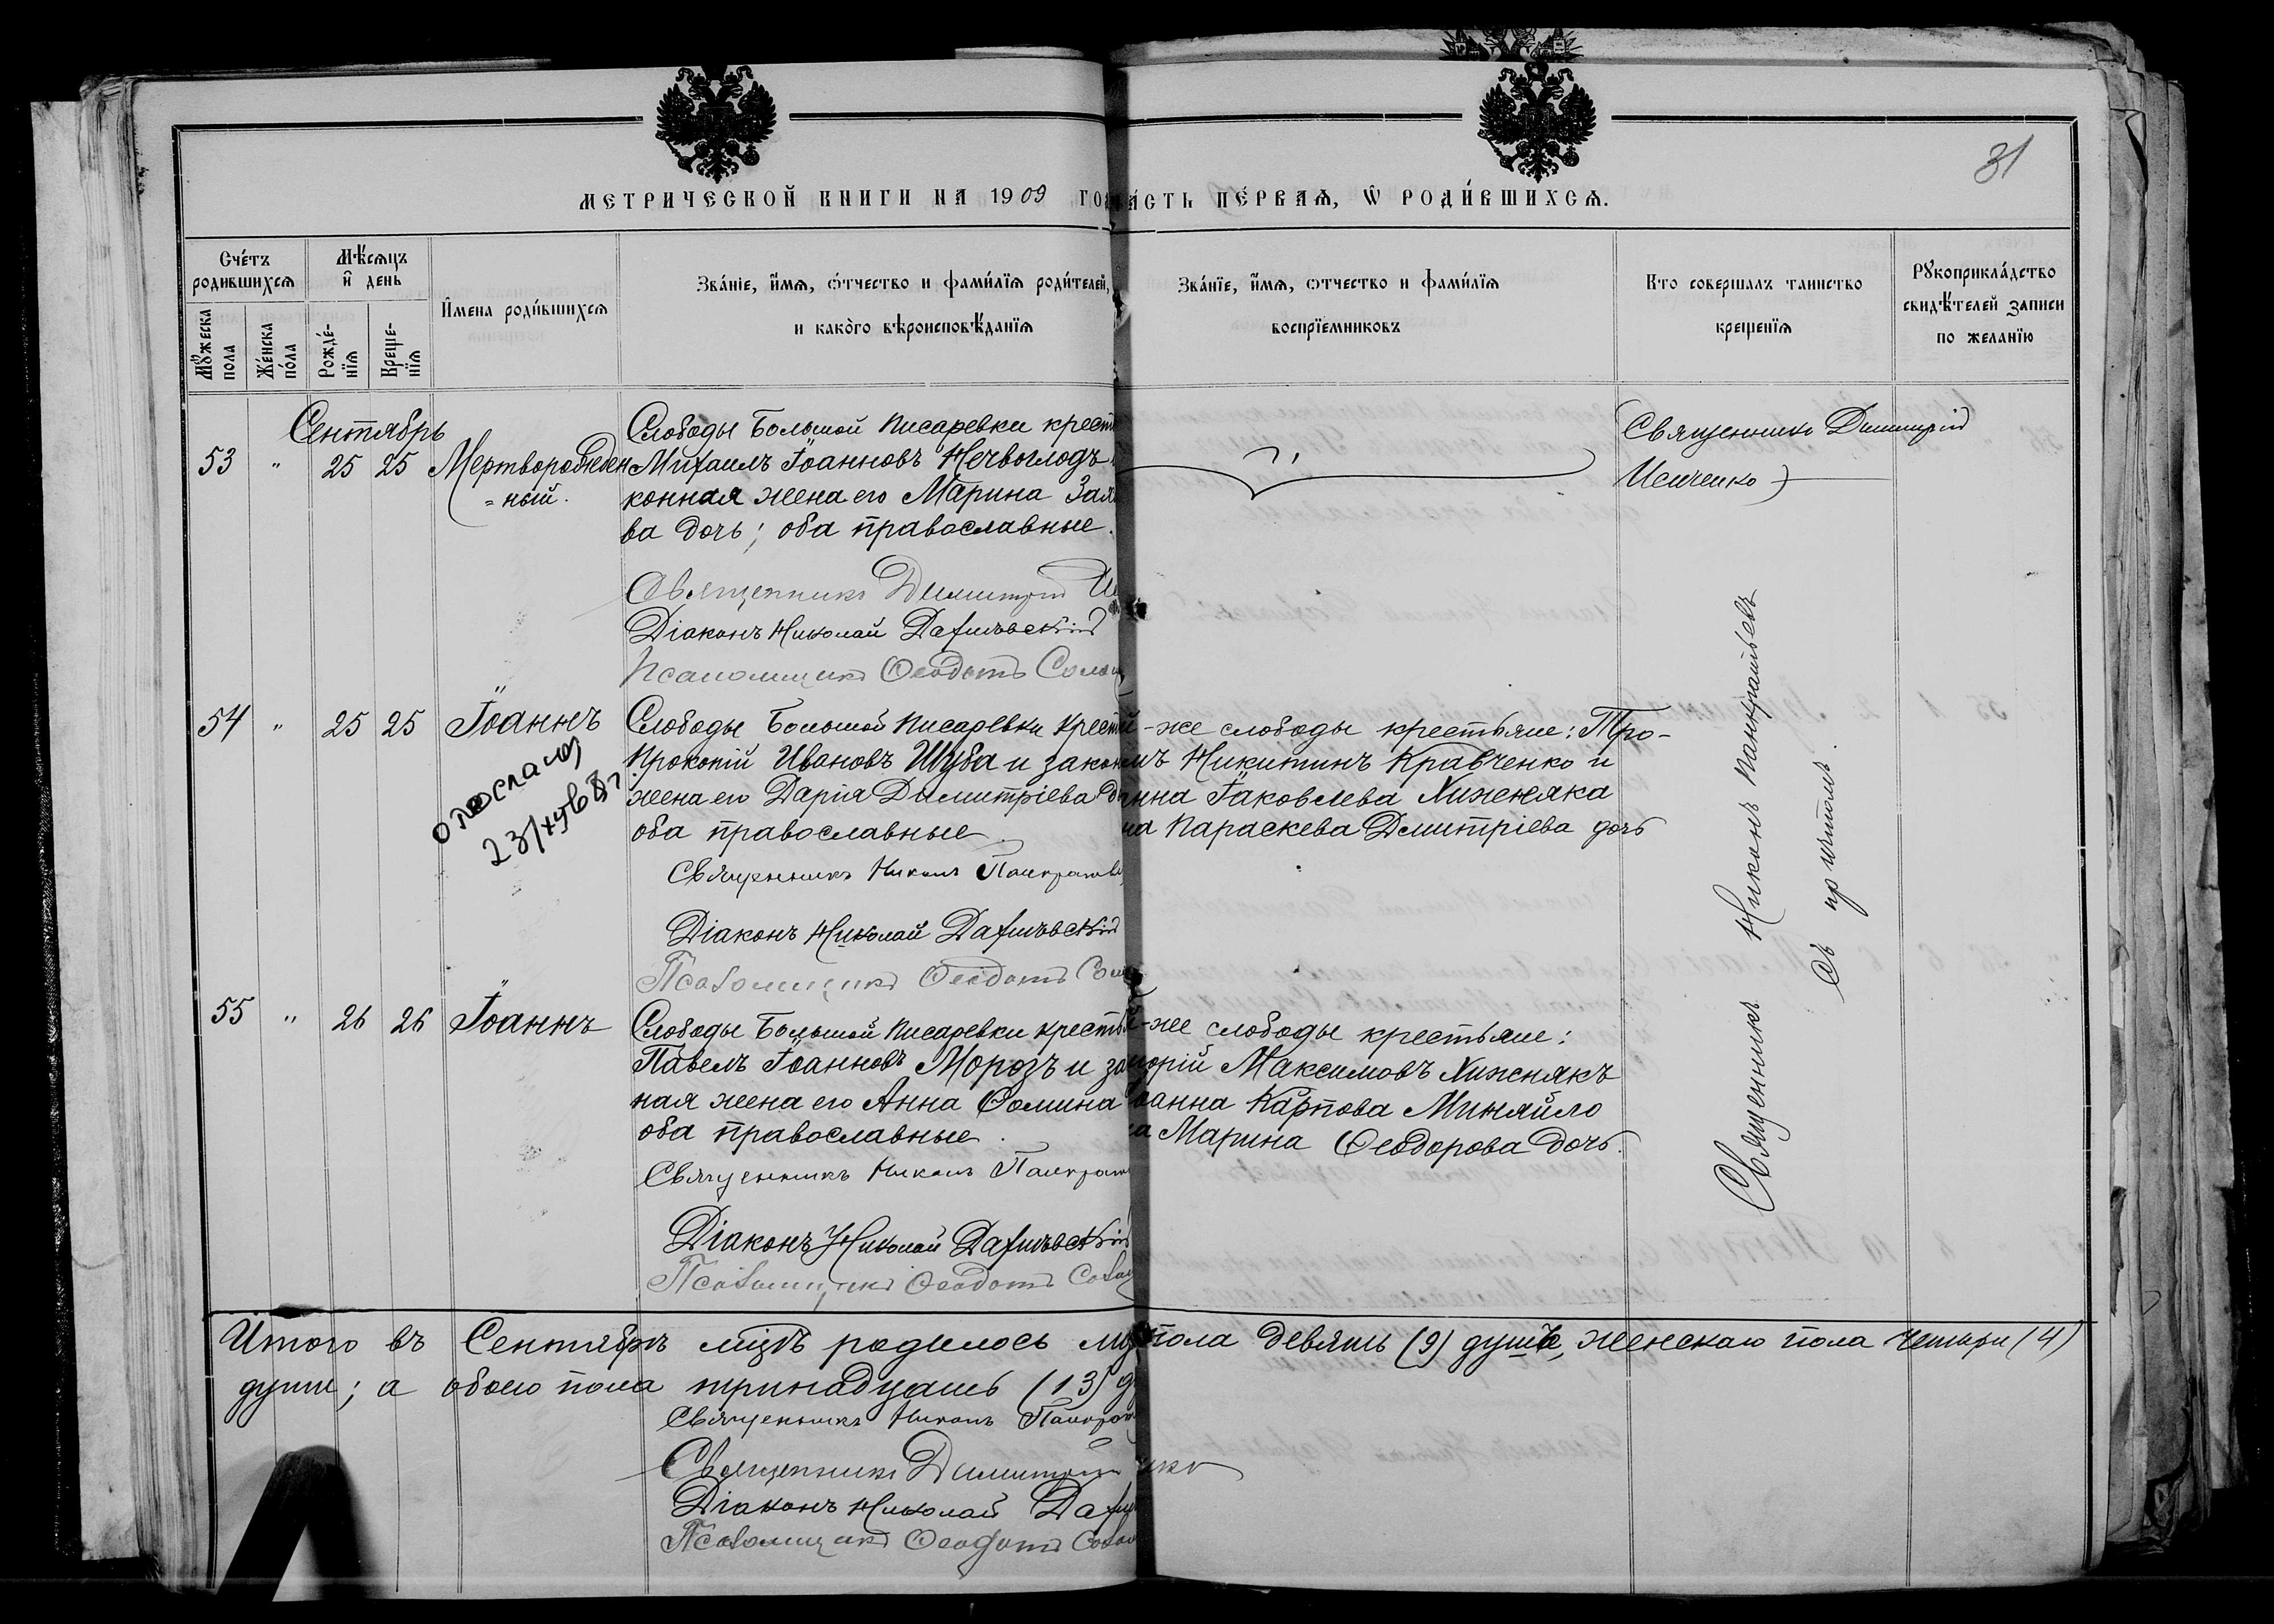 31
МЕТРИЧЕСКОЙ КНИГИ НА 1909 ГО
ЧАСТЬ ПЕ́РВАѦ, Ѡ҆ РОДИ́ВШИХСѦ.
Сче́тъ родившихсѧ
Мꙋ́жеска пола
Же́нска по́ла
Мѣ́сѧцъ и҆ день
Рожде́-нїѧ
Креще-нїѧ
И҆мена роди́вшихсѧ
Зва́нїе, и҆́мѧ, ѻ҆́тчество и фами́лїѧ роди́телей,
и како́гѡ вѣроисповѣ́данїѧ
Зва́нїе, и҆́мѧ, ѻтчество и фами́лїѧ
воспрїемниковъ
Кто совершалъ таинство
крещенїѧ
Рꙋкоприкла́дство
свидѣ́телей записи
по желанїю
Сентябрь
53 " 25 25 Мертворожден
=ный.
Слободы Большой Писаревки крест
Михаилъ Іоанновъ Нечвоглодъ
конная жена его Марина Зах
ва дочь; оба православные.
Священникъ Димитрій
Діаконъ Николай
Псаломщикъ Ѳеодотъ
Священникъ Димитрій
54 " 25 25 Іоаннъ
отослана
Слободы Большой Писаревки крест
Прокопій Ивановъ Шуба и закон
жена его Дарія Димитріева д
оба православные.
Священникъ Никонъ Панкратьев
Діаконъ Николай
Псаломщикъ Ѳеодотъ
-же слободы крестьяне: Тро-
мъ Никитинъ Кравченко и
нна Іаковлева Хиженяка
на Параскева Дмитріева дочь
55 " 26 26 Іоаннъ
Слободы Большой Писаревки крестья
Павелъ Іоанновъ Морозъ и за
ная жена его Анна Ѳомина
оба православные.
Священникъ Никонъ Панкрат
Діаконъ Николай
Псаломщикъ Ѳеодотъ
-же слободы крестьяне:
горій Максимовъ Хижнякъ
оанна Карпова Миняйло
на Марина Ѳеодорова дочь.
Священникъ Никонъ Панкратьевъ
съ причтомъ.
Итого въ Сентябрѣ мцѣ родилось му
пола девять (9) душъ, женскаго пола четыре (4)
души; а обоего пола тринадцать (13) д
Священникъ Никонъ Панкрат
Священникъ Димитрій
Діаконъ Николай
Псаломщикъ Ѳеодотъ